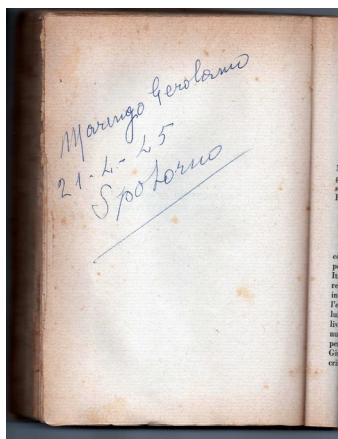 Marengo Gerolamo
21-4-45
Spotorno